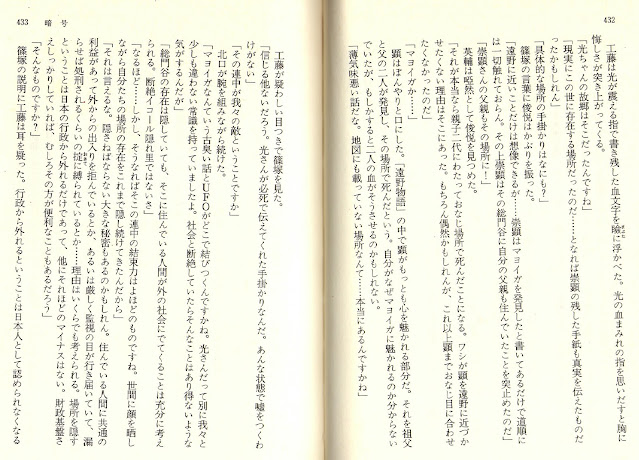 432
工藤は光が震える指で書き残した血文字を瞼に浮かべた。光の血まみれの指を思いだすと胸に
まぶた
悔しさが突き上がってくる。
「光ちゃんの故郷はそこだったんですね」
「現実にこの世に存在する場所だったのだ……となれば顕の残した手紙も真実を伝えたものだ
ったかもしれん」
「具体的な場所の手掛かりはなにも？」
篠塚の言葉に俊悦はかぶりを振った。
「遠野に近いことだけは想像できるが……崇顕はマヨイガを発見したと書いてあるだけで道順に
は一切触れておらん。その上崇顕はその総門谷に自分の父親も住んでいたことを突止めたのだ」
「崇顕さんの父親もその場所に！」
英輔は啞然として俊悦を見つめた。
「それが本当なら親子二代にわたっておなじ場所で死んだことになる。ワシが顕を遠野に近づか
せたくない理由はそこにあった。もちろん偶然かもしれんが、これ以上顕までおなじ目に合わせ
たくなかったのだ」
「マヨイガか……」
顕はぼんやりと口にした。『遠野物語』の中で顕がもっとも心を魅かれる部分だ。それを祖父
と父の二人が発見し、その場所で死んだという。自分がなぜマヨイガに魅かれるのか分からない
でいたが、もしかすると二人の血がそうさせるのかもしれない。
「薄気味悪い話だな。地図にも載っていない場所なんて……本当にあるんですかね」
433 暗号
工藤が疑わしい目つきで篠塚を見た。
「信じる他ないだろう。光さんが必死で伝えてくれた手掛かりなんだ。あんな状態で嘘をつくわ
けがない」
「その連中が我々の敵ということですか」
北口が腕を組みながら続けた。
「マヨイガなんていう古臭い話とＵＦＯがどこで結びつくんですかね。光さんだって別に我々と
少しも違わない常識を持っていましたよ。社会と断絶していたらそんなことはあり得ないような
気がするんだが」
「総門谷の存在は隠していても、そこに住んでいる人間が外の社会にでてくることは充分に考え
られる。断絶イコール隠れ里ではないさ」
「なるほど……しかし、そうなればそこの連中の結束力はよほどのものですね。世間に顔を晒し
ながら自分たちの場所の存在をこれまで隠し続けてきたんだから」
「それは言えるな。隠さねばならない大きな秘密もあるのかもしれん。住んでいる人間に共通の
利益があって外からの出入りを拒んでいるとか、あるいは厳しく監視の目が行き届いていて、漏
らせば処刑されるくらいの掟に縛られているとか……理由はいくらでも考えられる。場所を隠す
おきて
ということは日本の行政から外れるだけであって、他にそれほどのマイナスはない。財政基盤さ
えしっかりしていれば、むしろその方が便利なこともあるだろう」
「そんなものですか？」
篠塚の説明に工藤は耳を疑った。行政から外れるということは日本人として認められなくなる